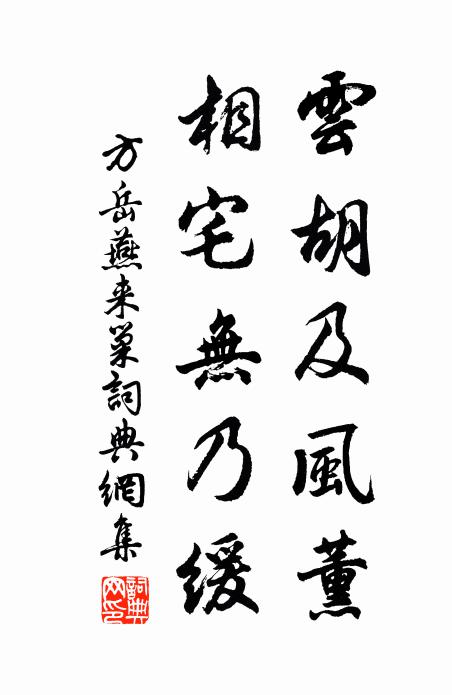 雲胡及風薰
相宅無乃緩
方岳燕来巢詞典網集
詞典
网印